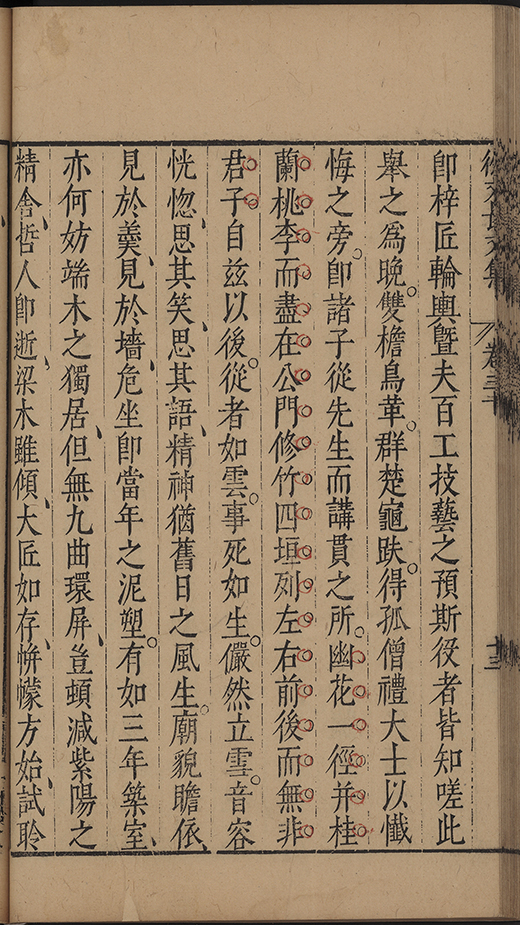 徐文長文集 卷三十 十三
即梓匠輪輿暨夫百工技藝之預斯役者皆知嗟此
舉之為晚。雙檐鳥革、群楚龜趺、得孤僧禮大士以懺
悔之旁。即諸子從先生而講貫之所。幽花一徑并桂
蘭桃李而盡在公門修竹四垣列左右前後而無非
君子自茲以後。從者如雲。事死如生。儼然立雪。音容
恍惚、思其笑、思其語、精神猶舊日之風生。廟貌瞻依、
見於羹、見於墻、危坐即當年之泥塑。有如三年築室、
亦何妨端木之獨居、但無九曲環屏、豈頓減紫陽之
精舍、哲人即逝、梁木雖傾、大匠如存、帡幪方始、試聆